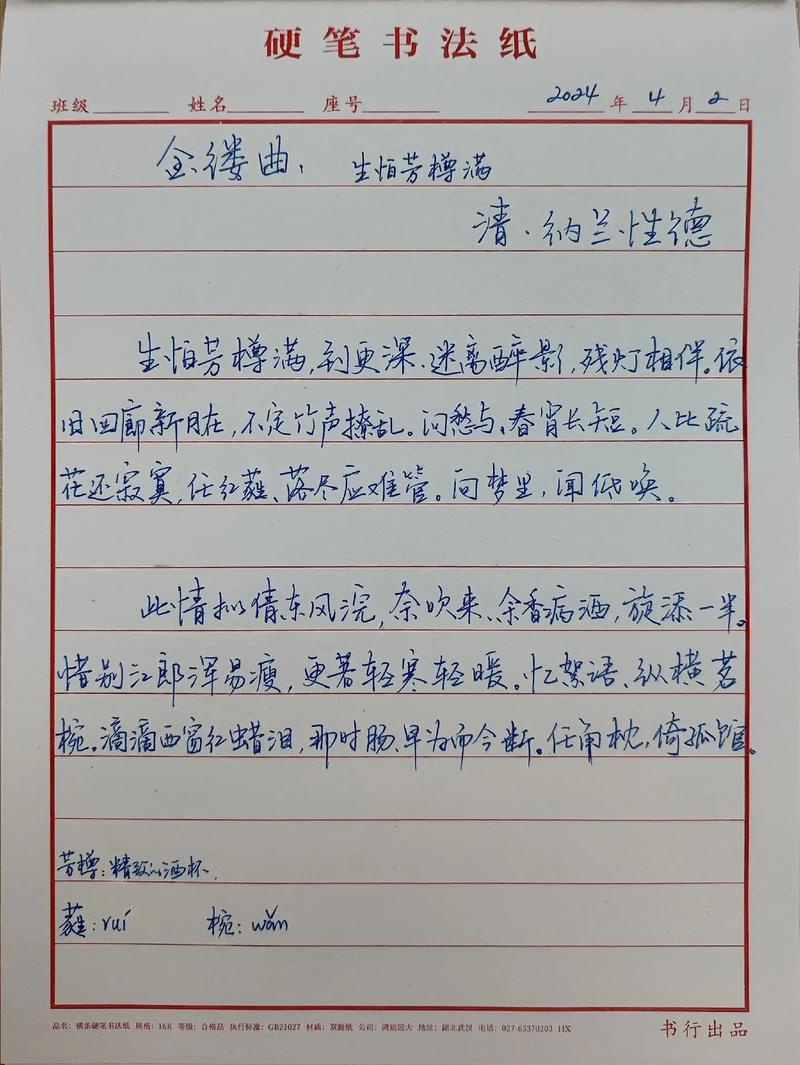 硬笔书法纸
班级 姓名 座号 2024年4月2日
金缕曲·生怕芳樽满
清·纳兰性德
生怕芳樽满,到更深、迷离醉影,残灯相伴。依
旧回廊新月在,不定竹声撩乱。问愁与、春宵长短。人比疏
花还寂寞,任红蕤、落尽应难管。向梦里,闻低唤。
此情拟倩东风浣,奈吹来、余香病酒,旋添一半。
惜别江郎浑易瘦,更著轻寒轻暖。忆絮语、纵横茗
椀。滴滴西窗红蜡泪,那时肠、早为而今断。任角枕,倚孤馆。
芳樽:精致的酒杯、
蕤:ruí 椀:wǎn
品名:横条硬笔书法纸 规格:16K 等级:合格品 执行标准:GB21027 材质:双胶纸 公司:鸿运远大 地址:湖北武汉 电话:027-63370203 HX
书行出品